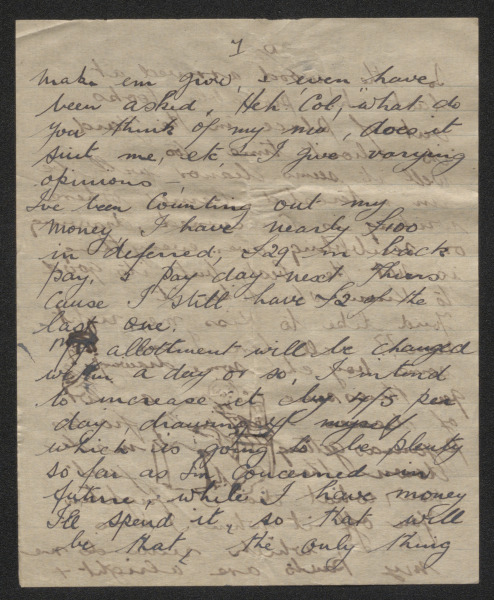 7
make em grow, & even have
been asked, "Heh Col," what do
you think of my mo, does it
suit me, etc, I give varying
opinions —
I've been Counting out my
money I have nearly £100
in deferred, £29 in back
pay, & pay day next Thurs
Cause I still have £2 of the
last one.
My allotment will be changed
within a day or so, I intend
to increase it by 4/3 per
day, drawing 1/- myself
which is going to be plenty
so far as I'm Concerned in
future, while I have money
I'll spend it, so that will
be that, the only thing